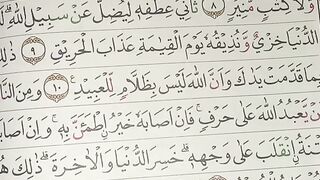 وَلَا كِتَٰبٍ مُّنِيرٍ ٨ ثَانِيَ عِطْفِهِۦ لِيُضِلَّ عَن سَبِيلِ اللَّهِ ۖ لَهُ
الدُّنْيَا خِزْيٌ ۖ وَنُذِيقُهُ يَوْمَ الْقِيَٰمَةِ عَذَابَ الْحَرِيقِ ٩ ذَٰلِكَ
بِمَا قَدَّمَتْ يَدَاكَ وَأَنَّ اللَّهَ لَيْسَ بِظَلَّٰمٍ لِّلْعَبِيدِ ١٠ وَمِنَ النَّا
ن يَعْبُدُ اللَّهَ عَلَىٰ حَرْفٍ ۖ فَإِنْ أَصَابَهُ خَيْرٌ اطْمَأَنَّ بِهِۦ ۖ وَإِنْ أَصَابَ
تْنَةٌ انقَلَبَ عَلَىٰ وَجْهِهِۦ خَسِرَ الدُّنْيَا وَالْآخِرَةَ ۚ ذَٰلِكَ هُ